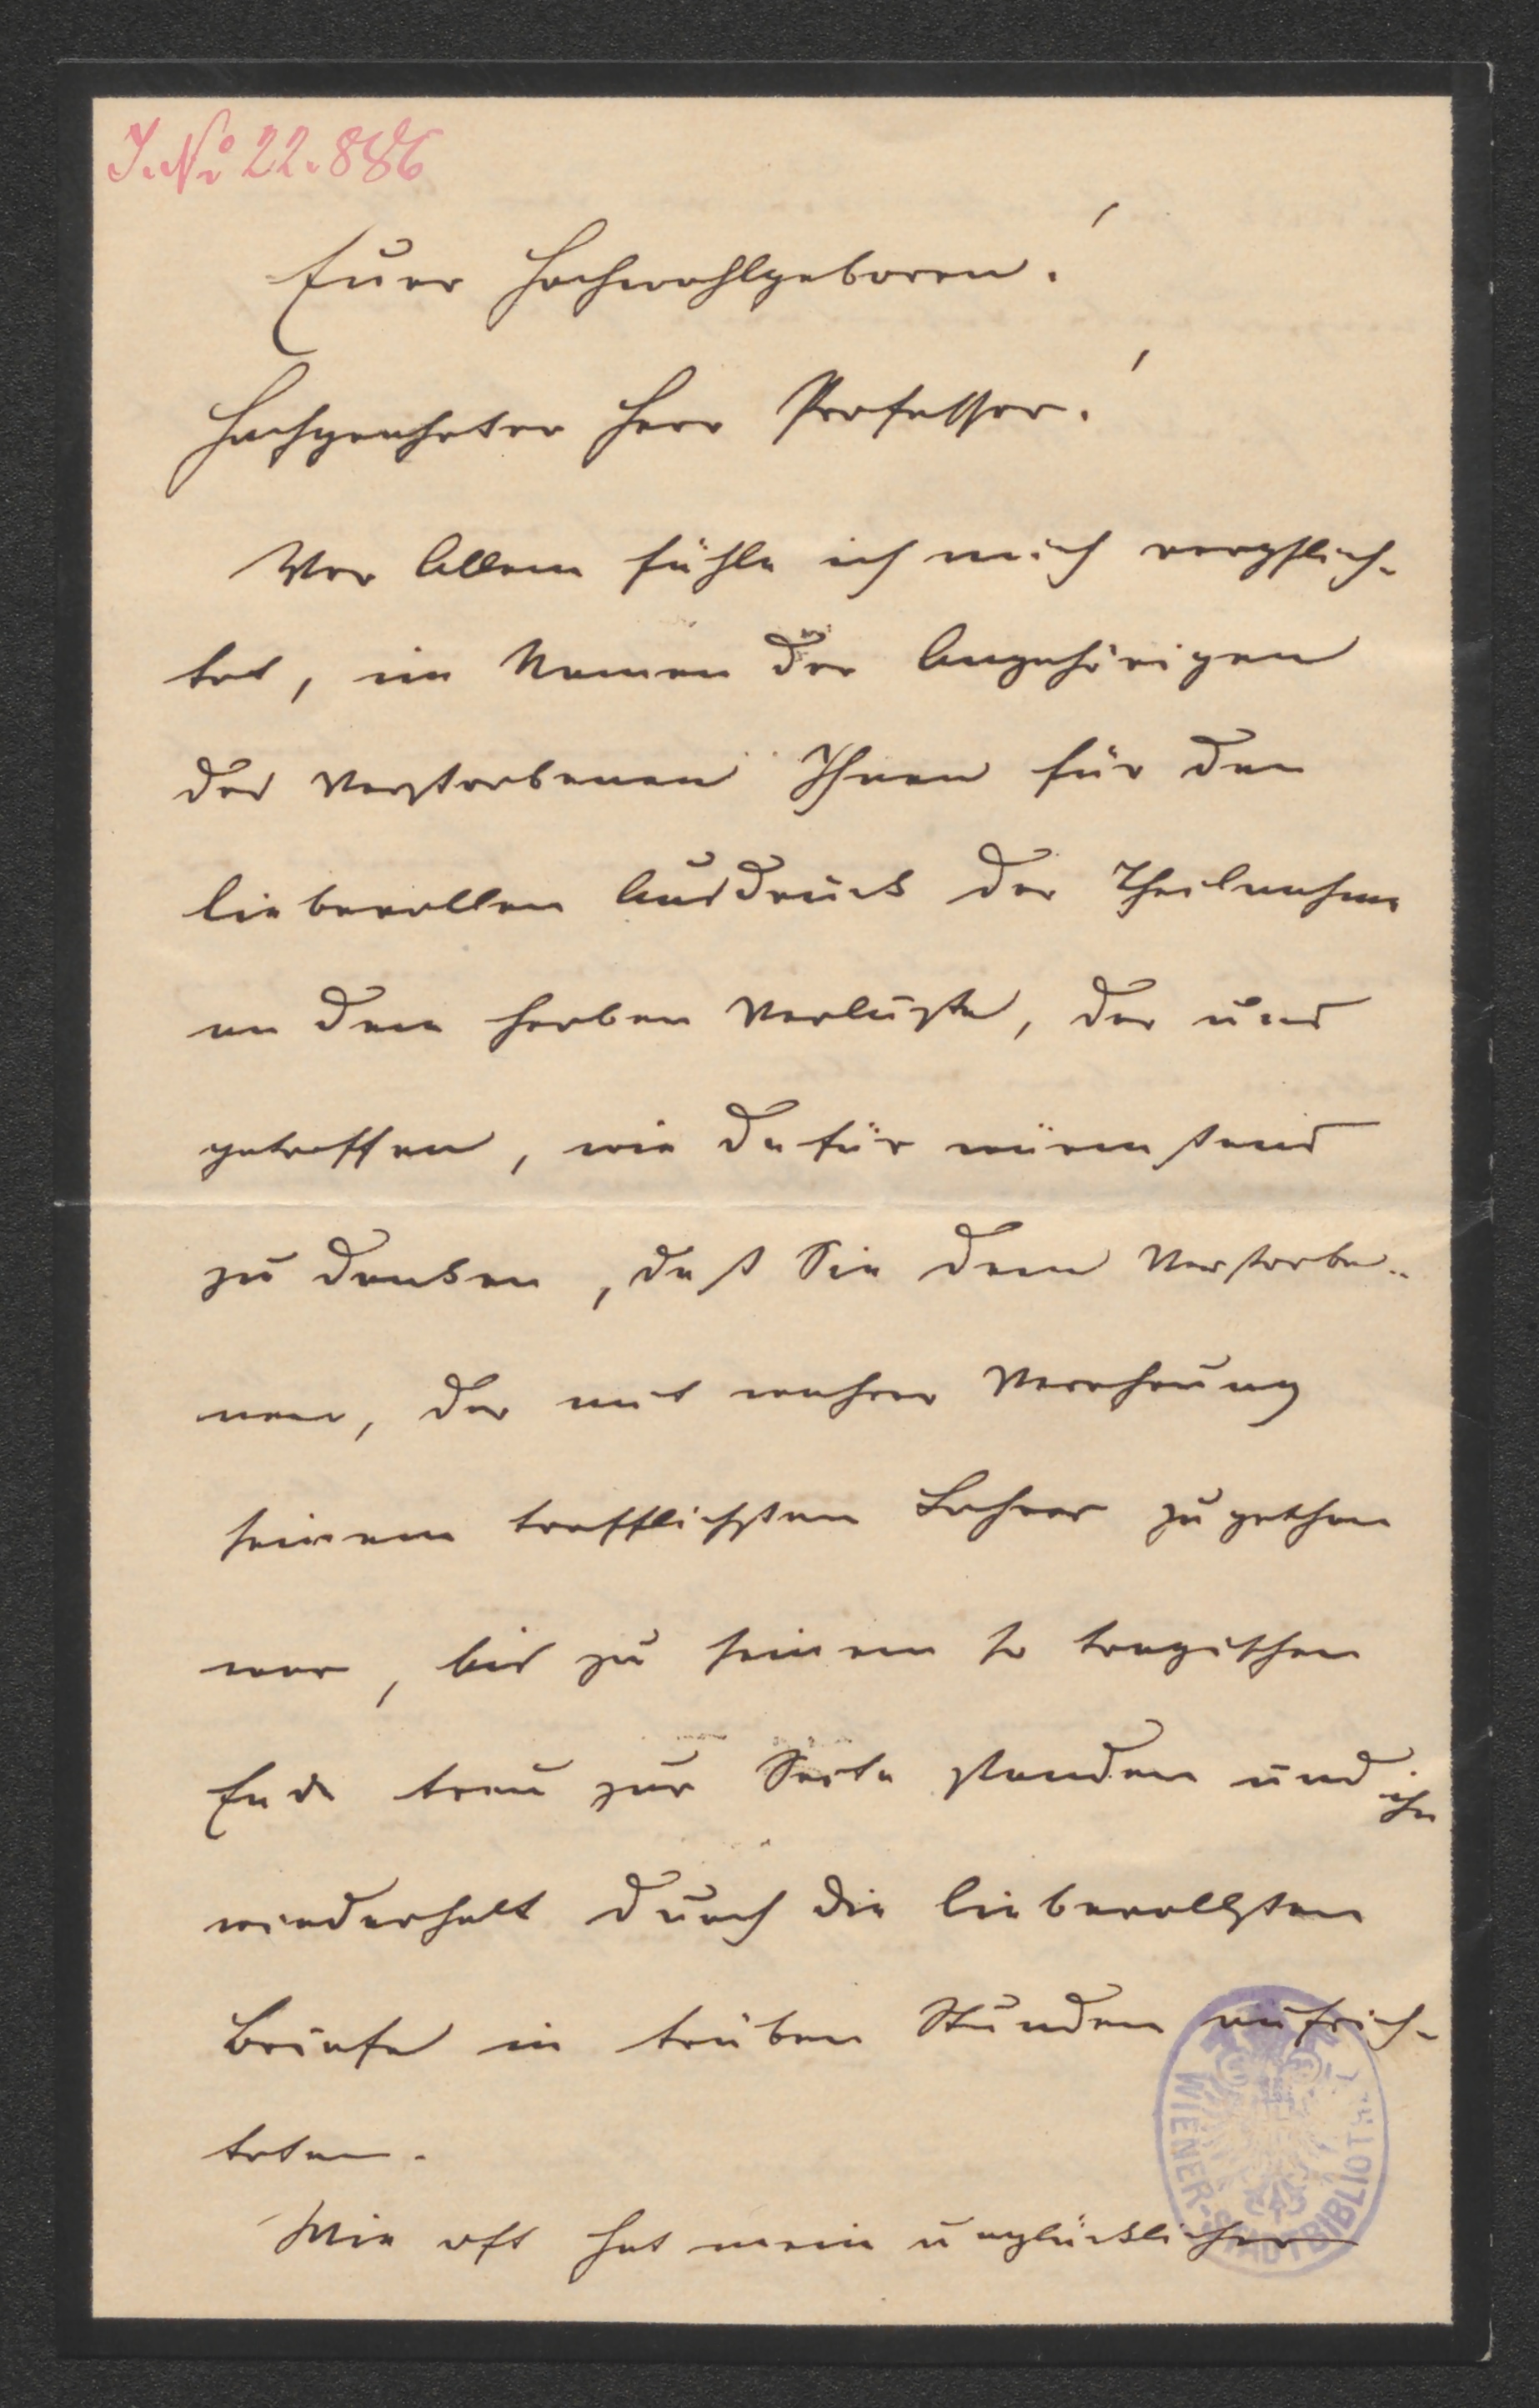 J. No 22.886
Euer Hochwohlgeboren!
Hochgeehrter Herr Professor!
Vor Allem fühle ich mich verpflich-
tet, im Namen der Angehörigen
des Verstorbenen Ihnen für den
liebevollen Ausdruck der Theilnahme
an dem herben Verluste, der uns
getroffen, wie dafür wärmstens
zu danken, daß Sie dem Verstorbe-
nen, der mit wahrer Verehrung
seinem trefflichsten Lehrer zugethan
war, bis zu seinem so tragischen
Ende treu zur Seite standen und ihn
wiederholt durch die liebevollsten
Briefe in trüben Stunden aufrich-
teten.
Wie oft hat mein unglücklicher
WIENER STADTBIBLIOTHEK